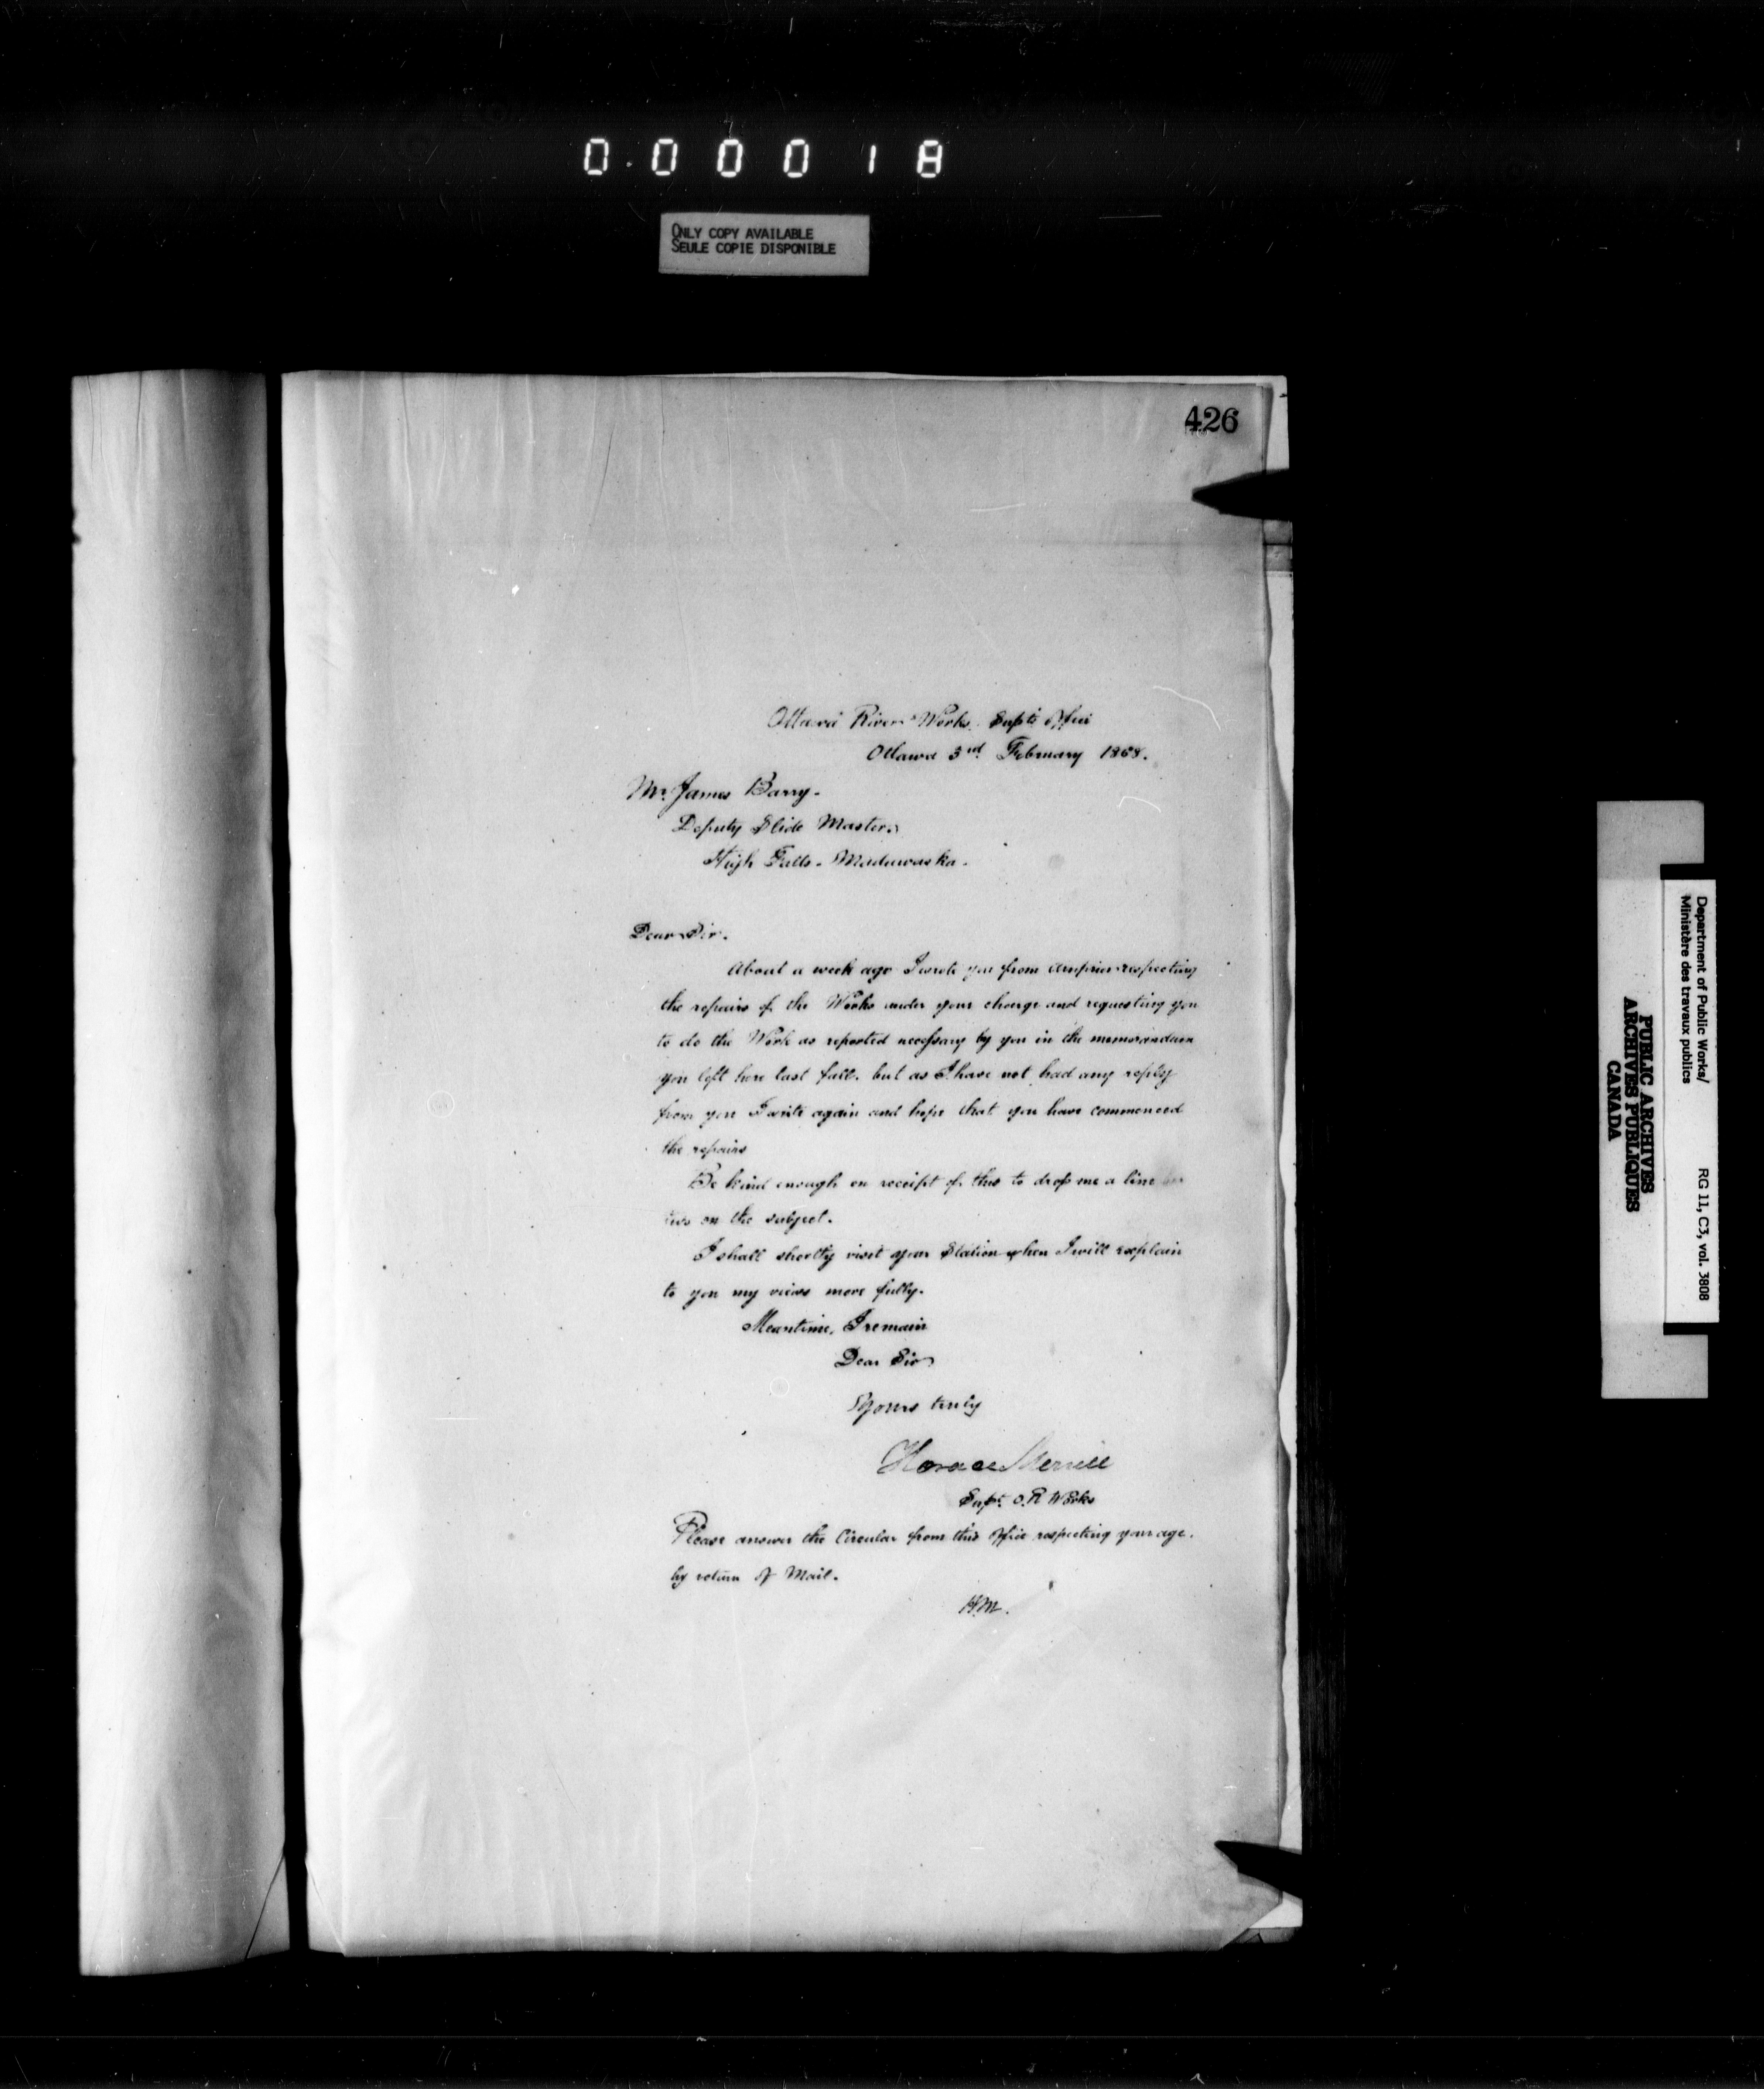 0.00018
ONLY COPY AVAILABLE
SEULE COPIE DISPONIBLE
426
Ottawa River Works. Supts Office
Ottawa 3rd February 1868.
Mr. James Barry.
Deputy Slide Master.
High Falls. Madawaska.
Dear Sir.
About a week ago I wrote you from Arnprior respecting
the repairs of the Works under your charge and requesting you
to do the Work as reported necessary by you in the memorandum
you left here last fall. but as I have not had any reply
from you I write again and hope that you have commenced
the repairs
Be kind enough on receipt of this to drop me a line or
two on the subject.
I shall shortly visit your Station when I will explain
to you my views more fully.
Meantime, I remain
Dear Sir
Yours truly
Horace Merrill
Supt. O.R Works
Please answer the Circular from this Office respecting your age.
by return of Mail.
H.M.
Department of Public Works/
Ministère des travaux publics
RG 11, C3, vol. 3808
PUBLIC ARCHIVES
ARCHIVES PUBLIQUES
CANADA